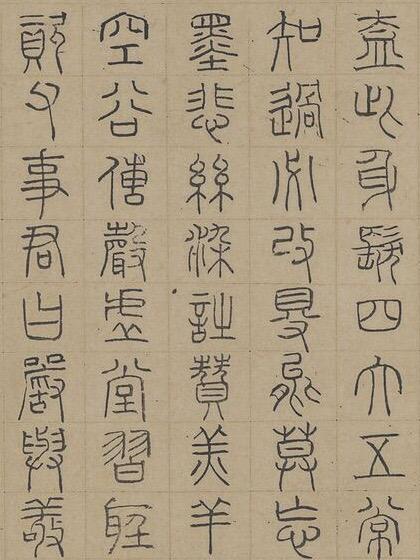 盍此身髮四大五常
知過必改得能莫忘
墨悲絲染詩贊羔羊
空谷傳聲虛堂習聽
資父事君曰嚴與敬